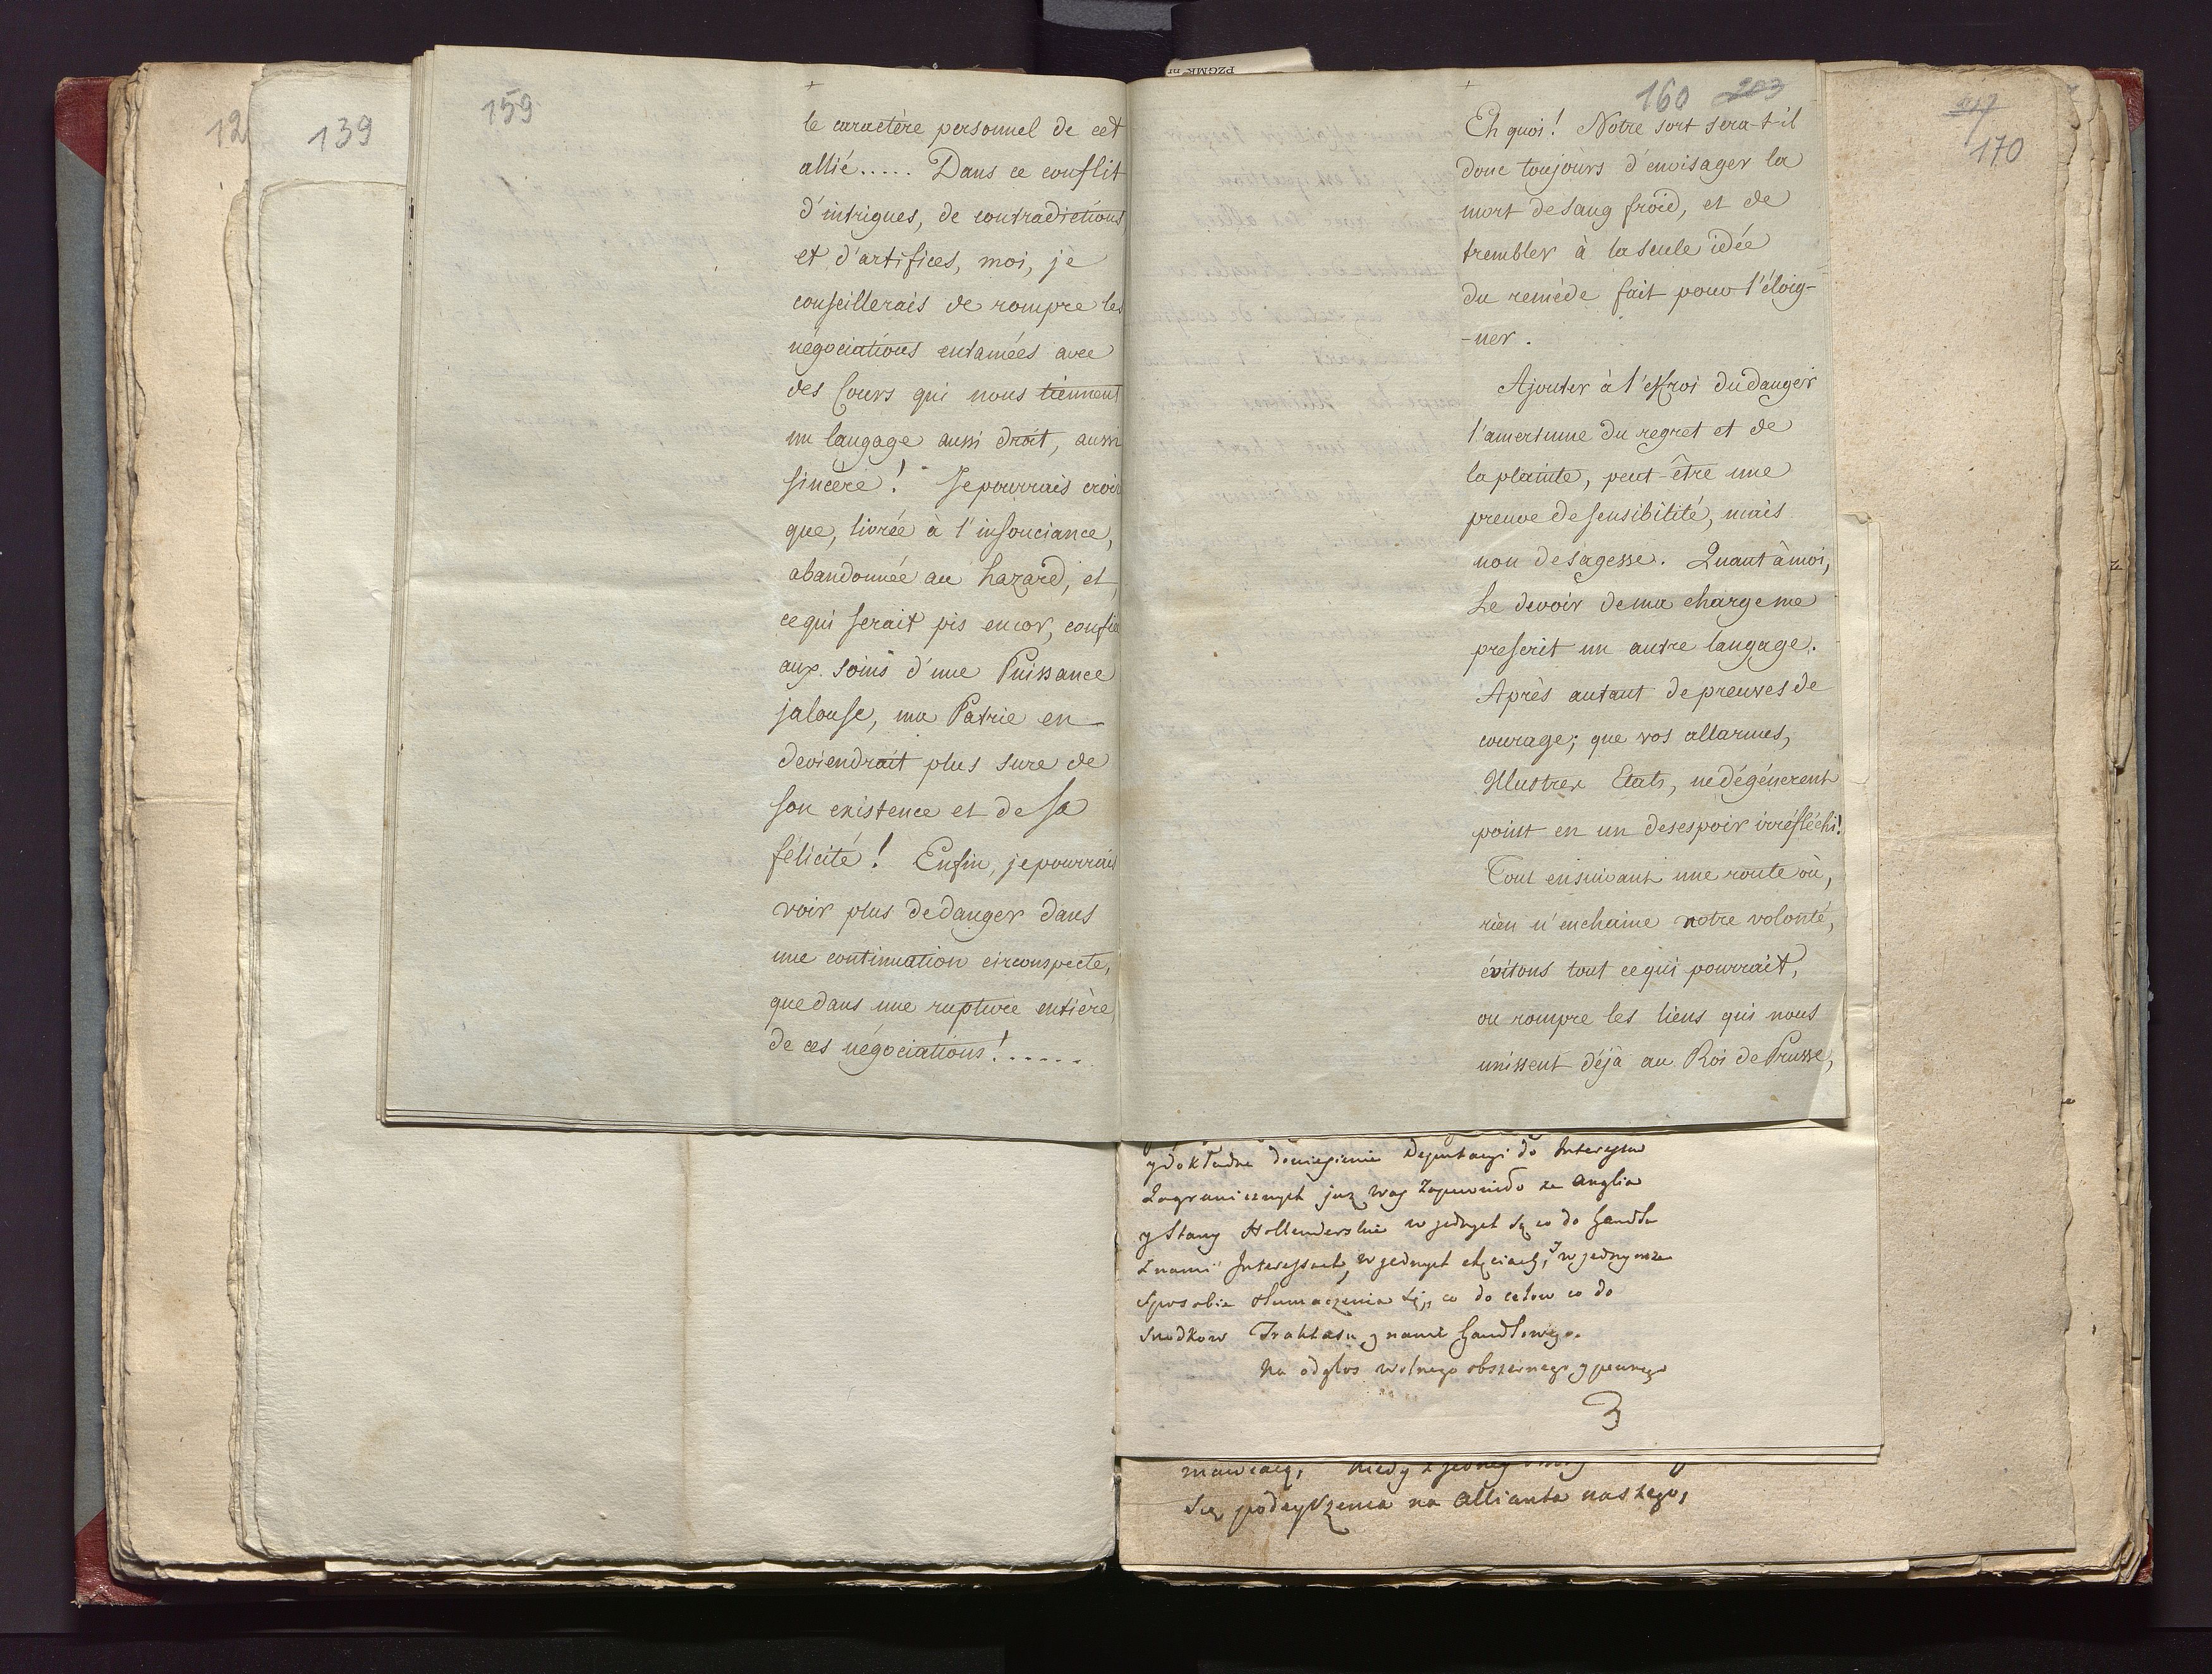 159
+
le caractère personnel de cet
allié..... Dans ce conflit
d'intrigues, de contradictions
et d'artifices, moi, je
conseillerais de rompre les
négociations entamées avec
des Cours qui nous tiennent
un langage aussi droit, aussi
sincère! Je pourrais croire
que, livrée à l'insouciance,
abandonnée au hazard, et,
ce qui serait pis encor, confiée
aux soins d'une Puissance
jalouse, ma Patrie en
deviendrait plus sure de
son existence et de sa
félicité! Enfin, je pourrais
voir plus de danger dans
une continuation circonspecte,
que dans une rupture entière
de ces négociations!......
139
12
160 203
+
Eh quoi! Notre sort sera-t-il
donc toujours d'envisager la
mort de sang froid, et de
trembler à la seule idée
du remède fait pour l'éloig-
-ner.
Ajouter à l'effroi du danger
l'amertume du regret et de
la plainte, peut-être une
preuve de sensibilité, mais
non de sagesse. Quant à moi,
Le devoir de ma charge me
prescrit un autre langage.
Après autant de preuves de
courage; que vos allarmes,
Illustres Etats, ne dégénerent
point en un desespoir irréfléchi!
Tout en suivant une route où,
rien n'enchaine notre volonté,
évitons tout ce qui pourrait,
ou rompre les liens qui nous
unissent déjà au Roi de Prusse,
170
PZGMK nr
y dokładne doniesienie Deputacyi do Interesów
Zagranicznych już was zapewniło ze Anglia
y Stany Hollenderskie w jednych są co do handlu
z nami Interessach, w jednych chęciach, w jednymże
sposobie tłumaczenia się, co do celow co do
srodkow Traktatu z nami handlowego.
Na odgłos wolnego obszernego y pewnego
3
mawiacz, kiedy z jedney
się podeyszenia na Allianta naszego,